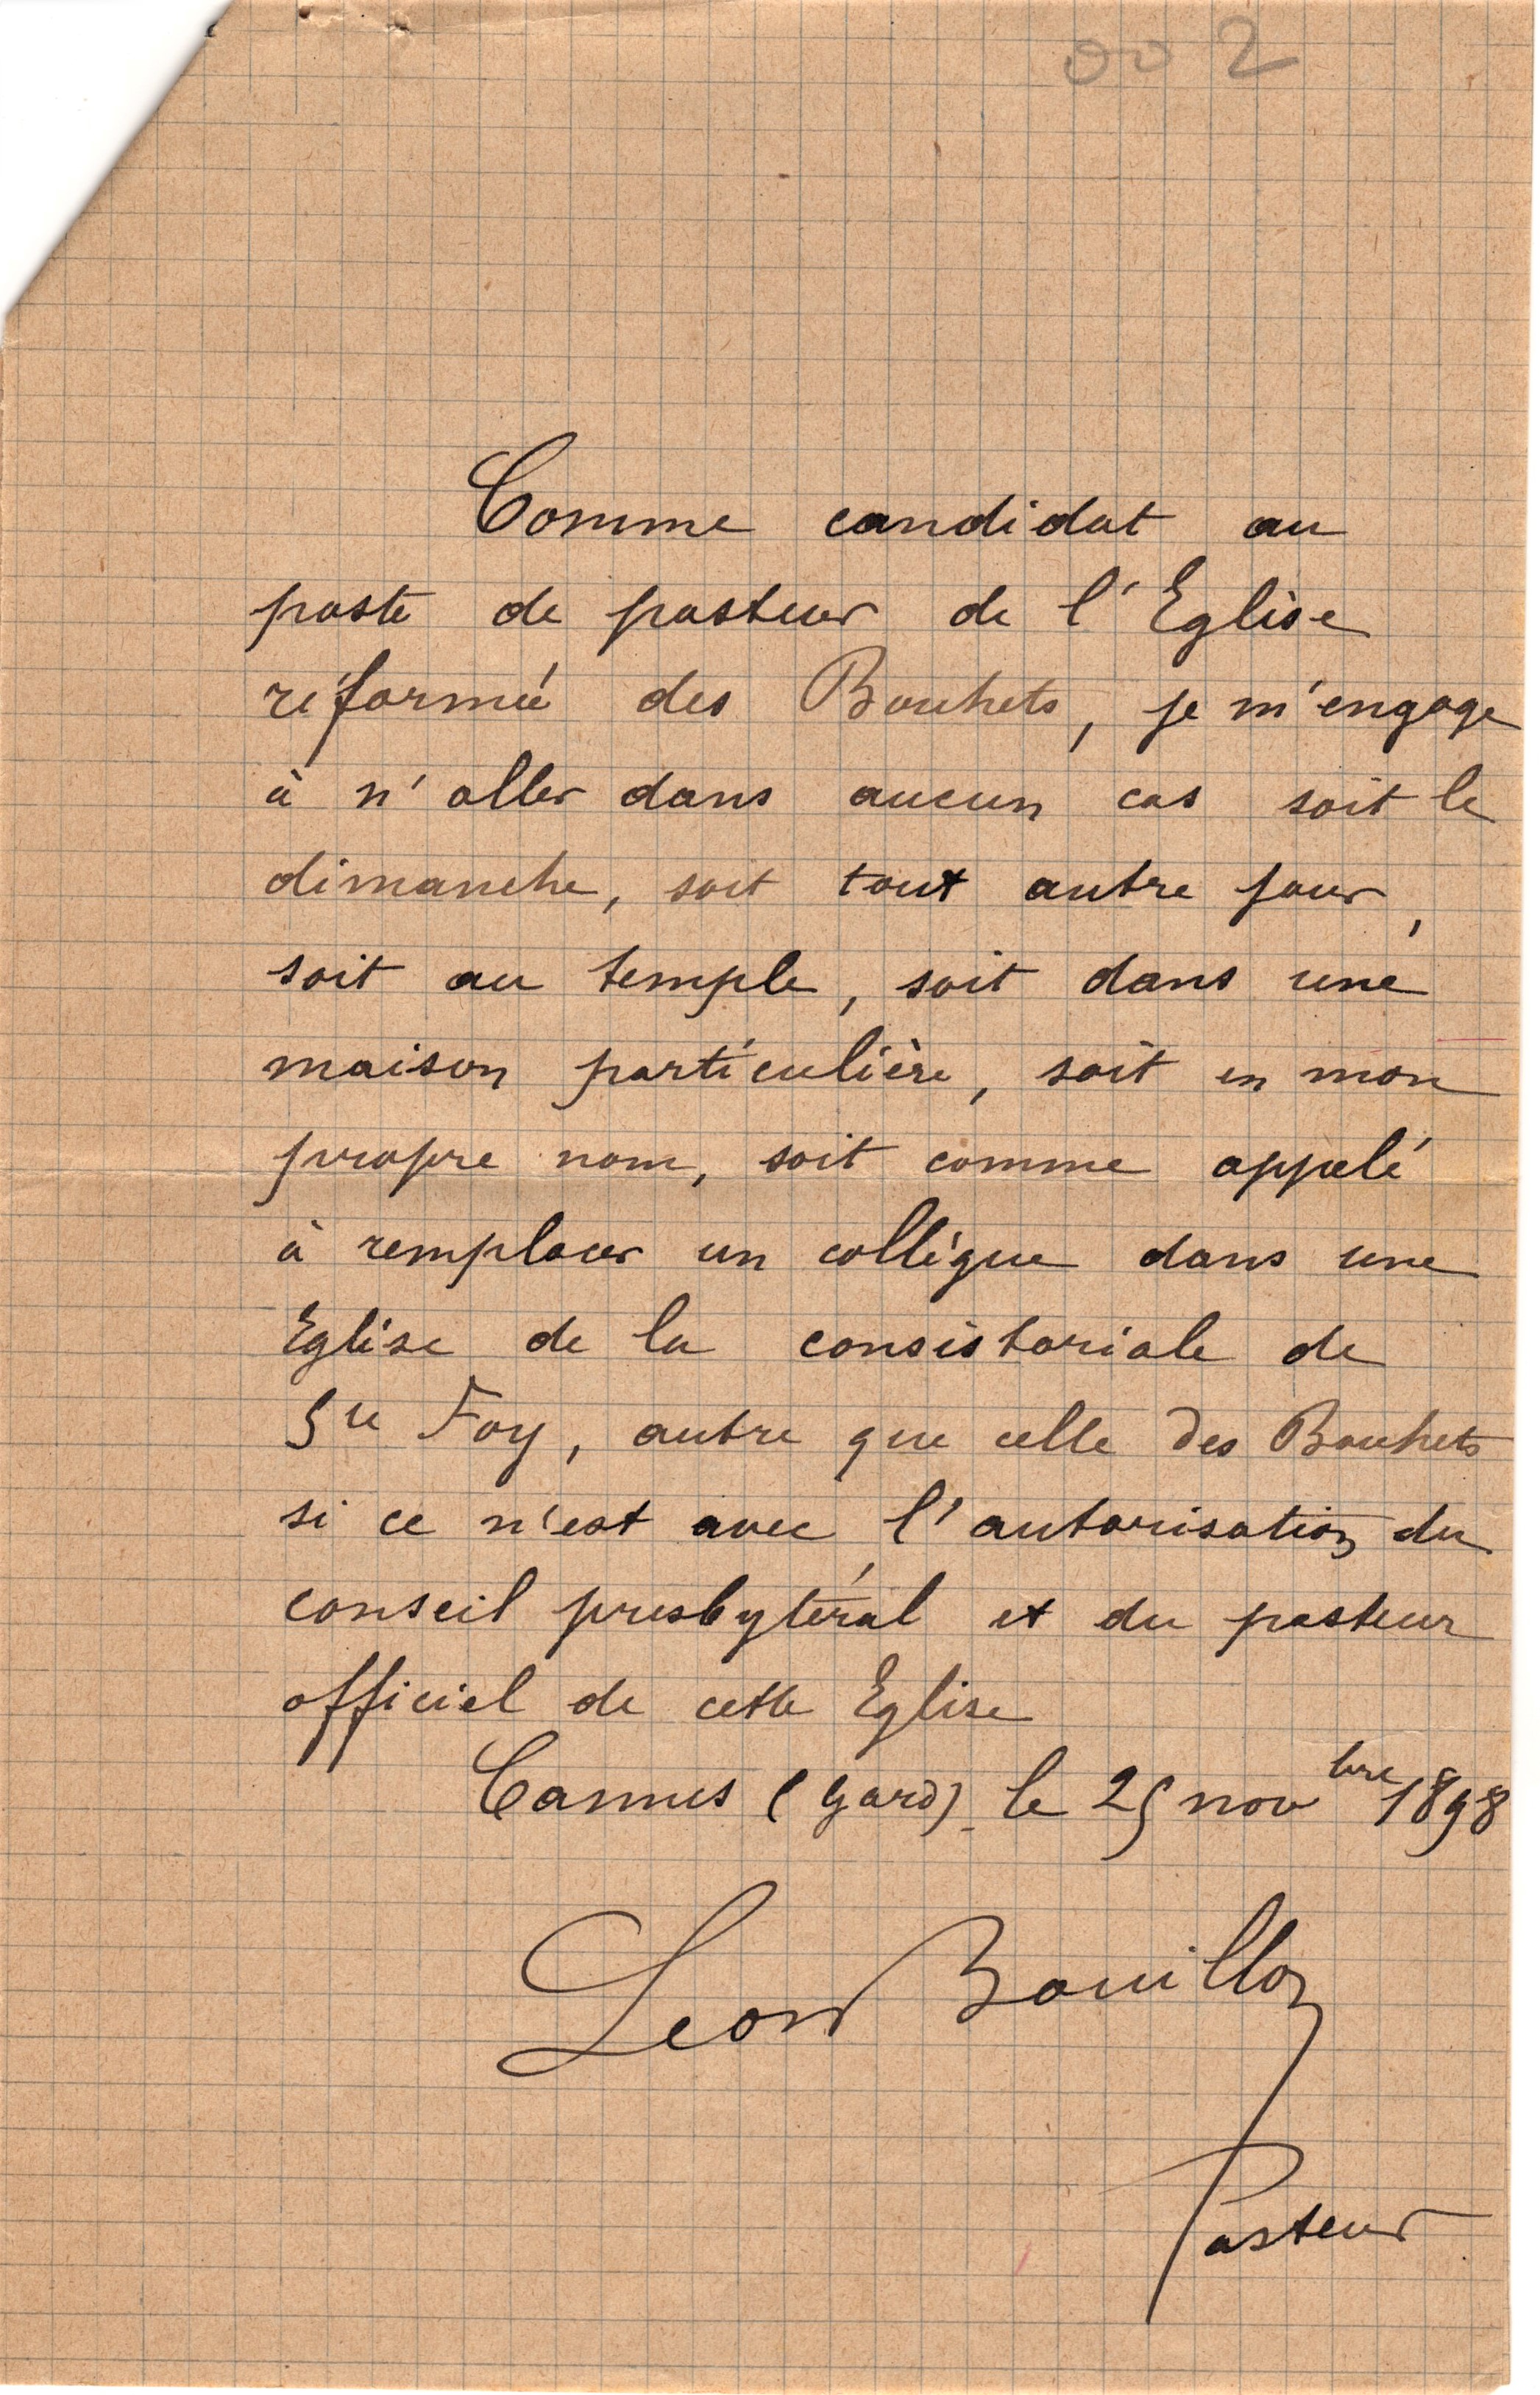 002
Comme candidat au
poste de pasteur de l'Eglise
réformée des Bouhets, je m'engage
à n'aller dans aucun cas soit le
dimanche, soit tout autre jour,
soit au temple, soit dans une
maison particulière, soit en mon
propre nom, soit comme appelé
à remplacer un collègue dans une
Eglise de la consistoriale de
Ste Foy, autre que celle des Bouhets
si ce n'est avec l'autorisation du
conseil presbytéral et du pasteur
officiel de cette Eglise
Cannes (Gard) le 25 novbre 1898
Leon Bouillon
Pasteur